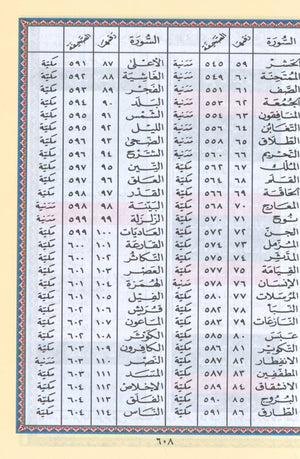 السُّورَة رقمها الصَّحيفَة السُّورَة رقمها الصَّحيفَة
الحَشر ٥٩ ٥٤٥ مَدَنية الأعلى ٨٧ ٥٩١ مكيّة
المُمتَحنَة ٦٠ ٥٤٩ مَدَنية الغَاشِيَة ٨٨ ٥٩٢ مكيّة
الصَّف ٦١ ٥٥١ مَدَنية الفَجر ٨٩ ٥٩٣ مكيّة
الجُمُعَة ٦٢ ٥٥٣ مَدَنية البَلَد ٩٠ ٥٩٤ مكيّة
المنَافِقون ٦٣ ٥٥٤ مَدَنية الشَّمس ٩١ ٥٩٥ مكيّة
التغَابُن ٦٤ ٥٥٦ مَدَنية الليْل ٩٢ ٥٩٥ مكيّة
الطَّلَاق ٦٥ ٥٥٨ مَدَنية الضّحىٰ ٩٣ ٥٩٦ مكيّة
التحْريم ٦٦ ٥٦٠ مَدَنية الشَّرْح ٩٤ ٥٩٦ مكيّة
المُلك ٦٧ ٥٦٢ مكيّة التِّين ٩٥ ٥٩٧ مكيّة
القَلَم ٦٨ ٥٦٤ مكيّة العَلَق ٩٦ ٥٩٧ مكيّة
الحَاقَّة ٦٩ ٥٦٦ مكيّة القَدْر ٩٧ ٥٩٨ مكيّة
المعَارج ٧٠ ٥٦٨ مكيّة البَيّنَة ٩٨ ٥٩٨ مَدَنية
نُوح ٧١ ٥٧٠ مكيّة الزّلزَلة ٩٩ ٥٩٩ مَدَنية
الجن ٧٢ ٥٧٢ مكيّة العَاديَات ١٠٠ ٥٩٩ مكيّة
المُزَّمِّل ٧٣ ٥٧٤ مكيّة القَارعَة ١٠١ ٦٠٠ مكيّة
المدَّثِّر ٧٤ ٥٧٥ مكيّة التكاثُر ١٠٢ ٦٠٠ مكيّة
القِيَامَة ٧٥ ٥٧٧ مكيّة العَصْر ١٠٣ ٦٠١ مكيّة
الإنسَان ٧٦ ٥٧٨ مَدَنية الهُمَزة ١٠٤ ٦٠١ مكيّة
المُرسَلات ٧٧ ٥٨٠ مكيّة الفِيل ١٠٥ ٦٠١ مكيّة
النّبَأ ٧٨ ٥٨٢ مكيّة قُرَيش ١٠٦ ٦٠٢ مكيّة
النّازعَات ٧٩ ٥٨٣ مكيّة الماعُون ١٠٧ ٦٠٢ مكيّة
عَبَسَ ٨٠ ٥٨٥ مكيّة الكَوثَر ١٠٨ ٦٠٢ مكيّة
التكوير ٨١ ٥٨٦ مكيّة الكافِرون ١٠٩ ٦٠٣ مكيّة
الانفِطار ٨٢ ٥٨٧ مكيّة النَّصْر ١١٠ ٦٠٣ مَدَنية
المطفّفِين ٨٣ ٥٨٧ مكيّة المَسَد ١١١ ٦٠٣ مكيّة
الانشقاق ٨٤ ٥٨٩ مكيّة الإخلَاص ١١٢ ٦٠٤ مكيّة
البُروج ٨٥ ٥٩٠ مكيّة الفَلَق ١١٣ ٦٠٤ مكيّة
الطّارق ٨٦ ٥٩١ مكيّة النَّاس ١١٤ ٦٠٤ مكيّة
٦٠٨